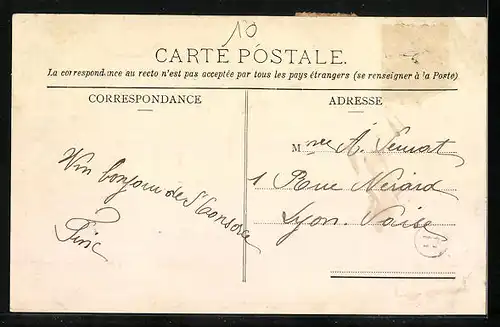 10
CARTE POSTALE.
La correspondance au recto n'est pas acceptée par tous les pays étrangers (se renseigner à la Poste)
CORRESPONDANCE
ADRESSE
Mme A.
1 Rue Nérard
Lyon. Vaise
bonjour de St Consorce